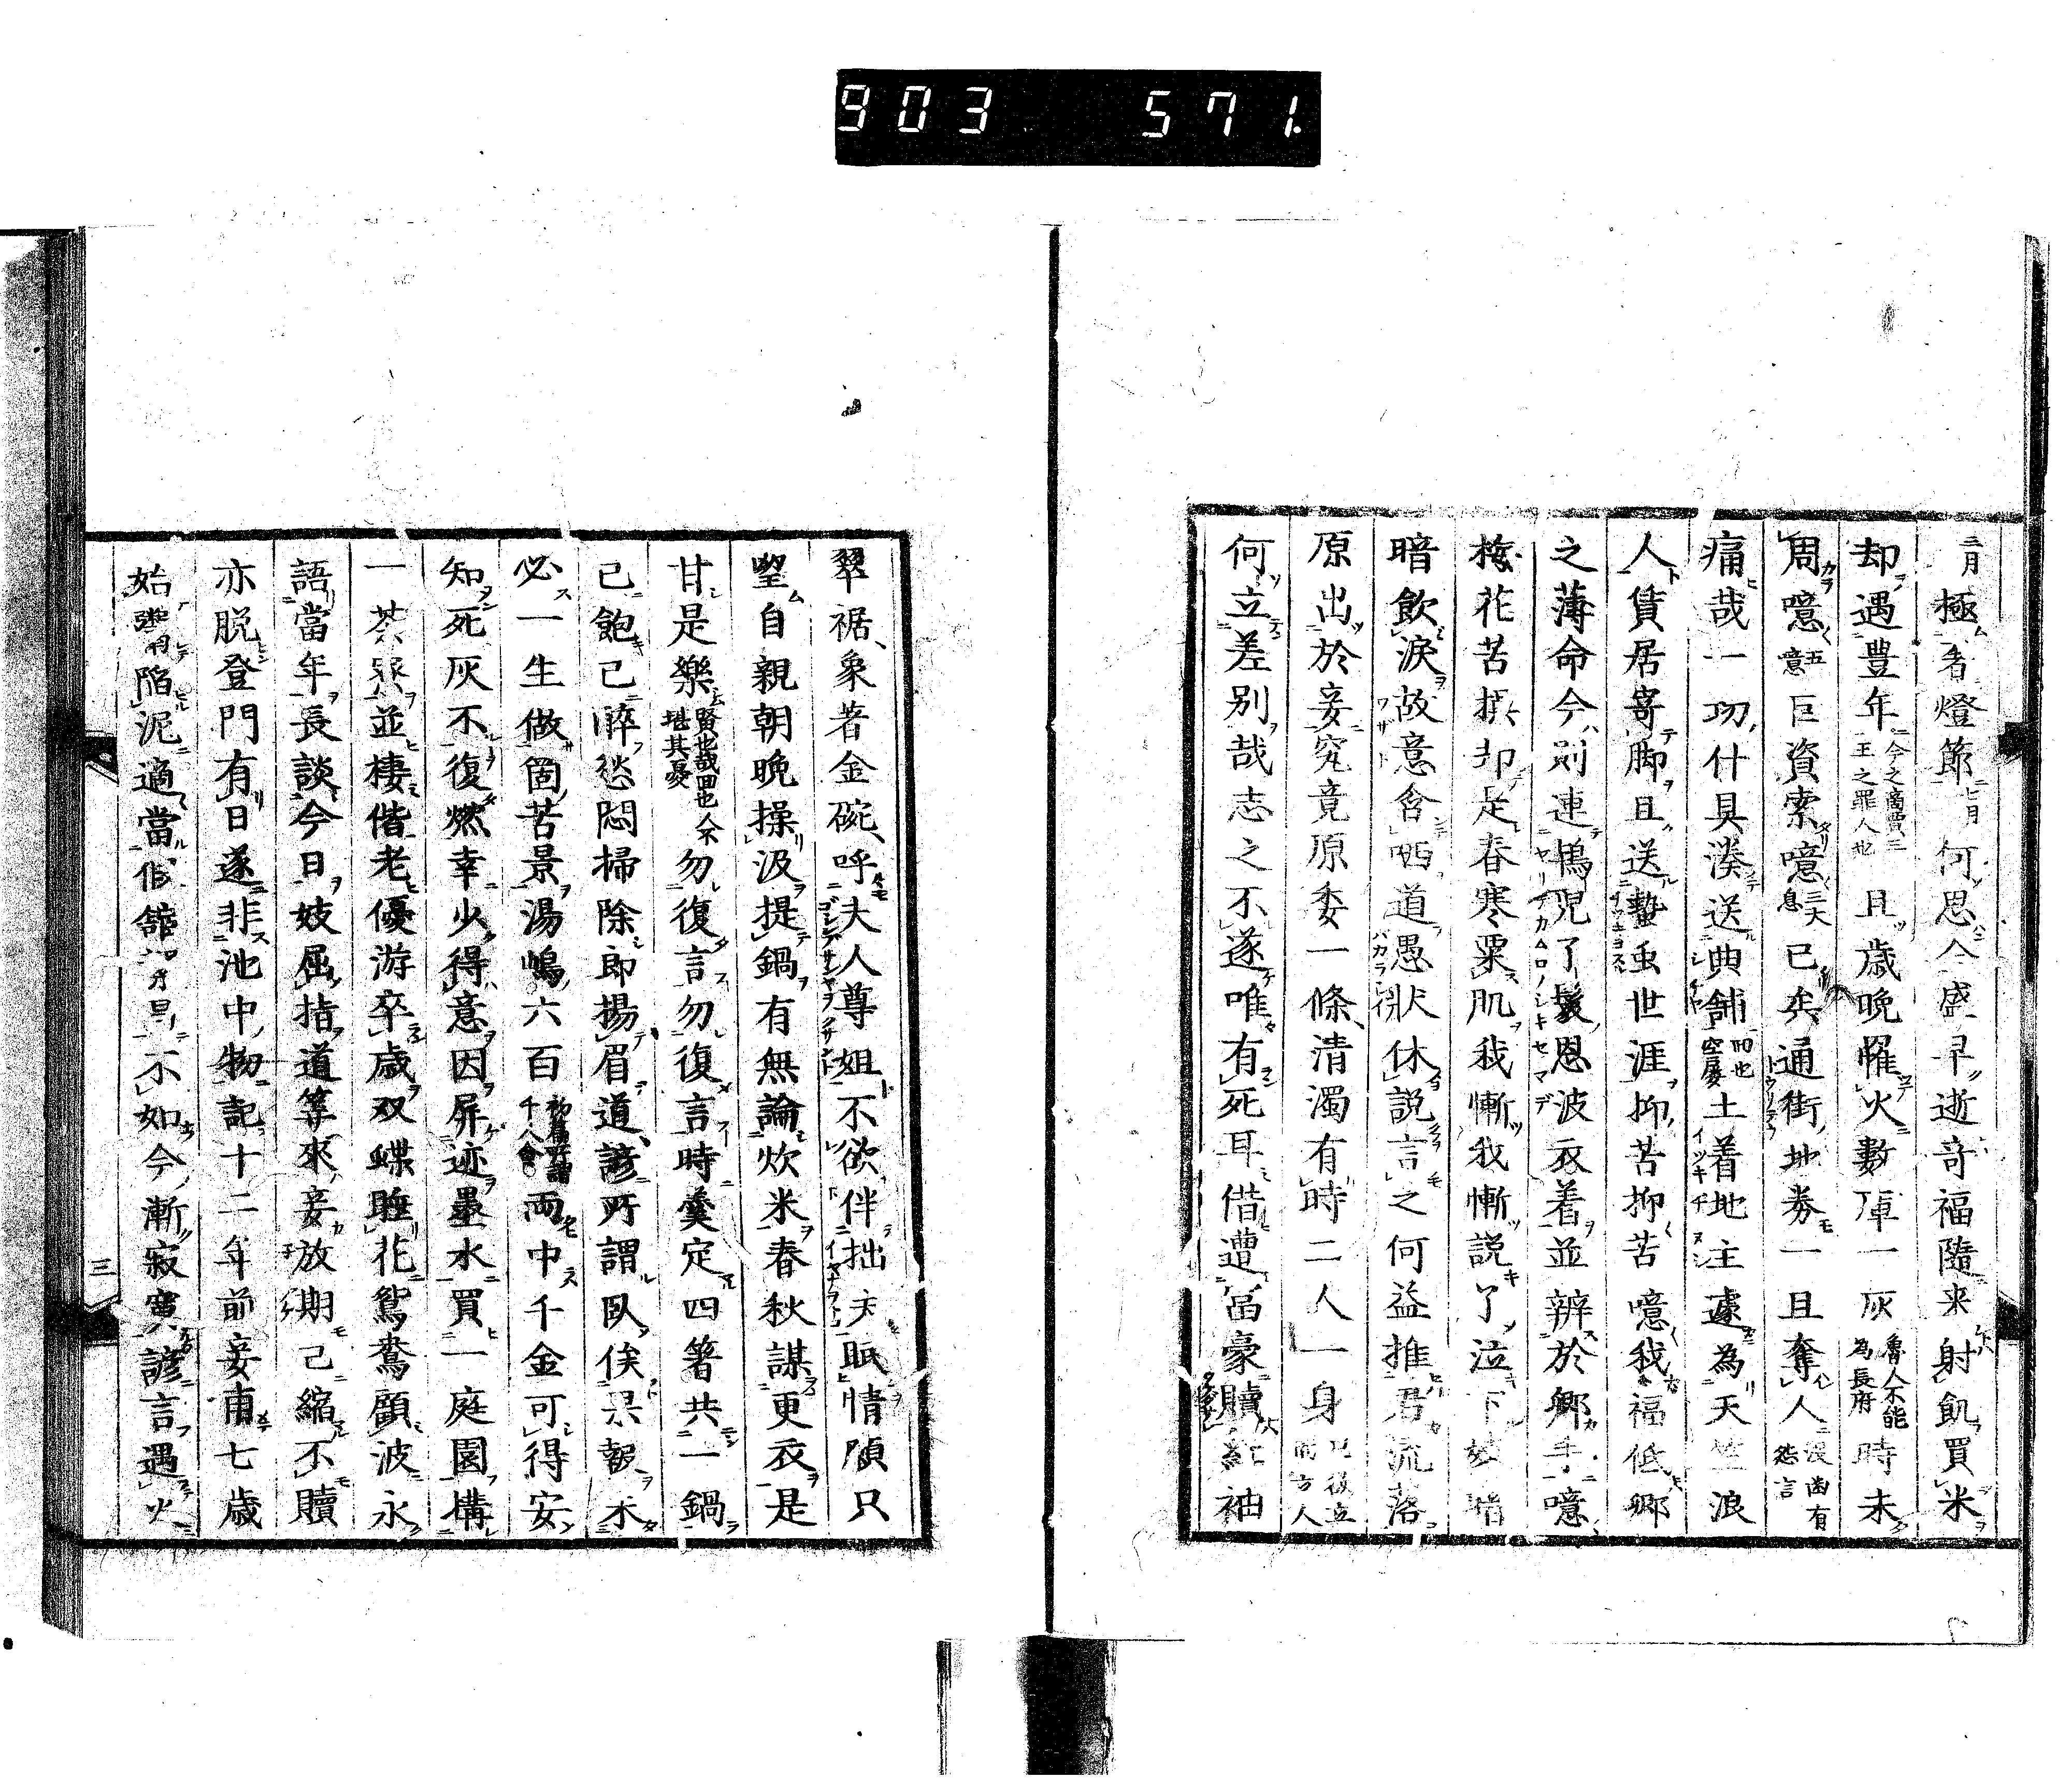 903 571.
極看燈節何思全盛早逝奇福隨来射飢買米
二月 七月
却遇豊年 且歳晩罹火數庫一灰 時未
今之商賈三王之罪人也
魯人不能為長府
周噫 巨資索噫 已矣通街地券一旦奪人
五噫
三大息
没齒有怨言
痛哉一切什具湊送典舗 土着地主遽為天竺浪
人賃居寄脚且送蟄虫世涯抑苦抑苦噫我福低郷
之薄命今則連鴇児了鬟恩波衣着並辨於郷手噫
梅花苦摸却是春寒粟肌我慚我慚説了泣下
暗飲淚故意含哂道愚状休説言之何益推君流落
原出於妾究竟原委一條清濁有時二人一身
何立差別哉志之不遂唯有死耳借遭富豪贖紅袖
翠裾象著金碗呼夫人尊姐不欲伴拙夫眠情願只
望自親朝晩操汲提鍋有無論炊米春秋謀更衣是
甘是樂 勿復言勿復言時羹定四箸共一鍋
賢也哉回也人不堪其憂
已飽已醉愁悶掃除郎揚眉道諺所謂臥俟果報不
必一生做箇苦景湯嶋六百 両中千金可得安
知死灰不復燃幸少得意因屏迹墨水買一庭園構
一茶寮並棲偕老優游卒歳双蝶睡花鴛鴦顧波永
語當年長談今日妓屈指道等來妾放期已縮不贖
亦脱登門有日遂非池中物記十二年前妾甫七歳
始 陥泥適當 不如今漸寂寞諺言遇火
三